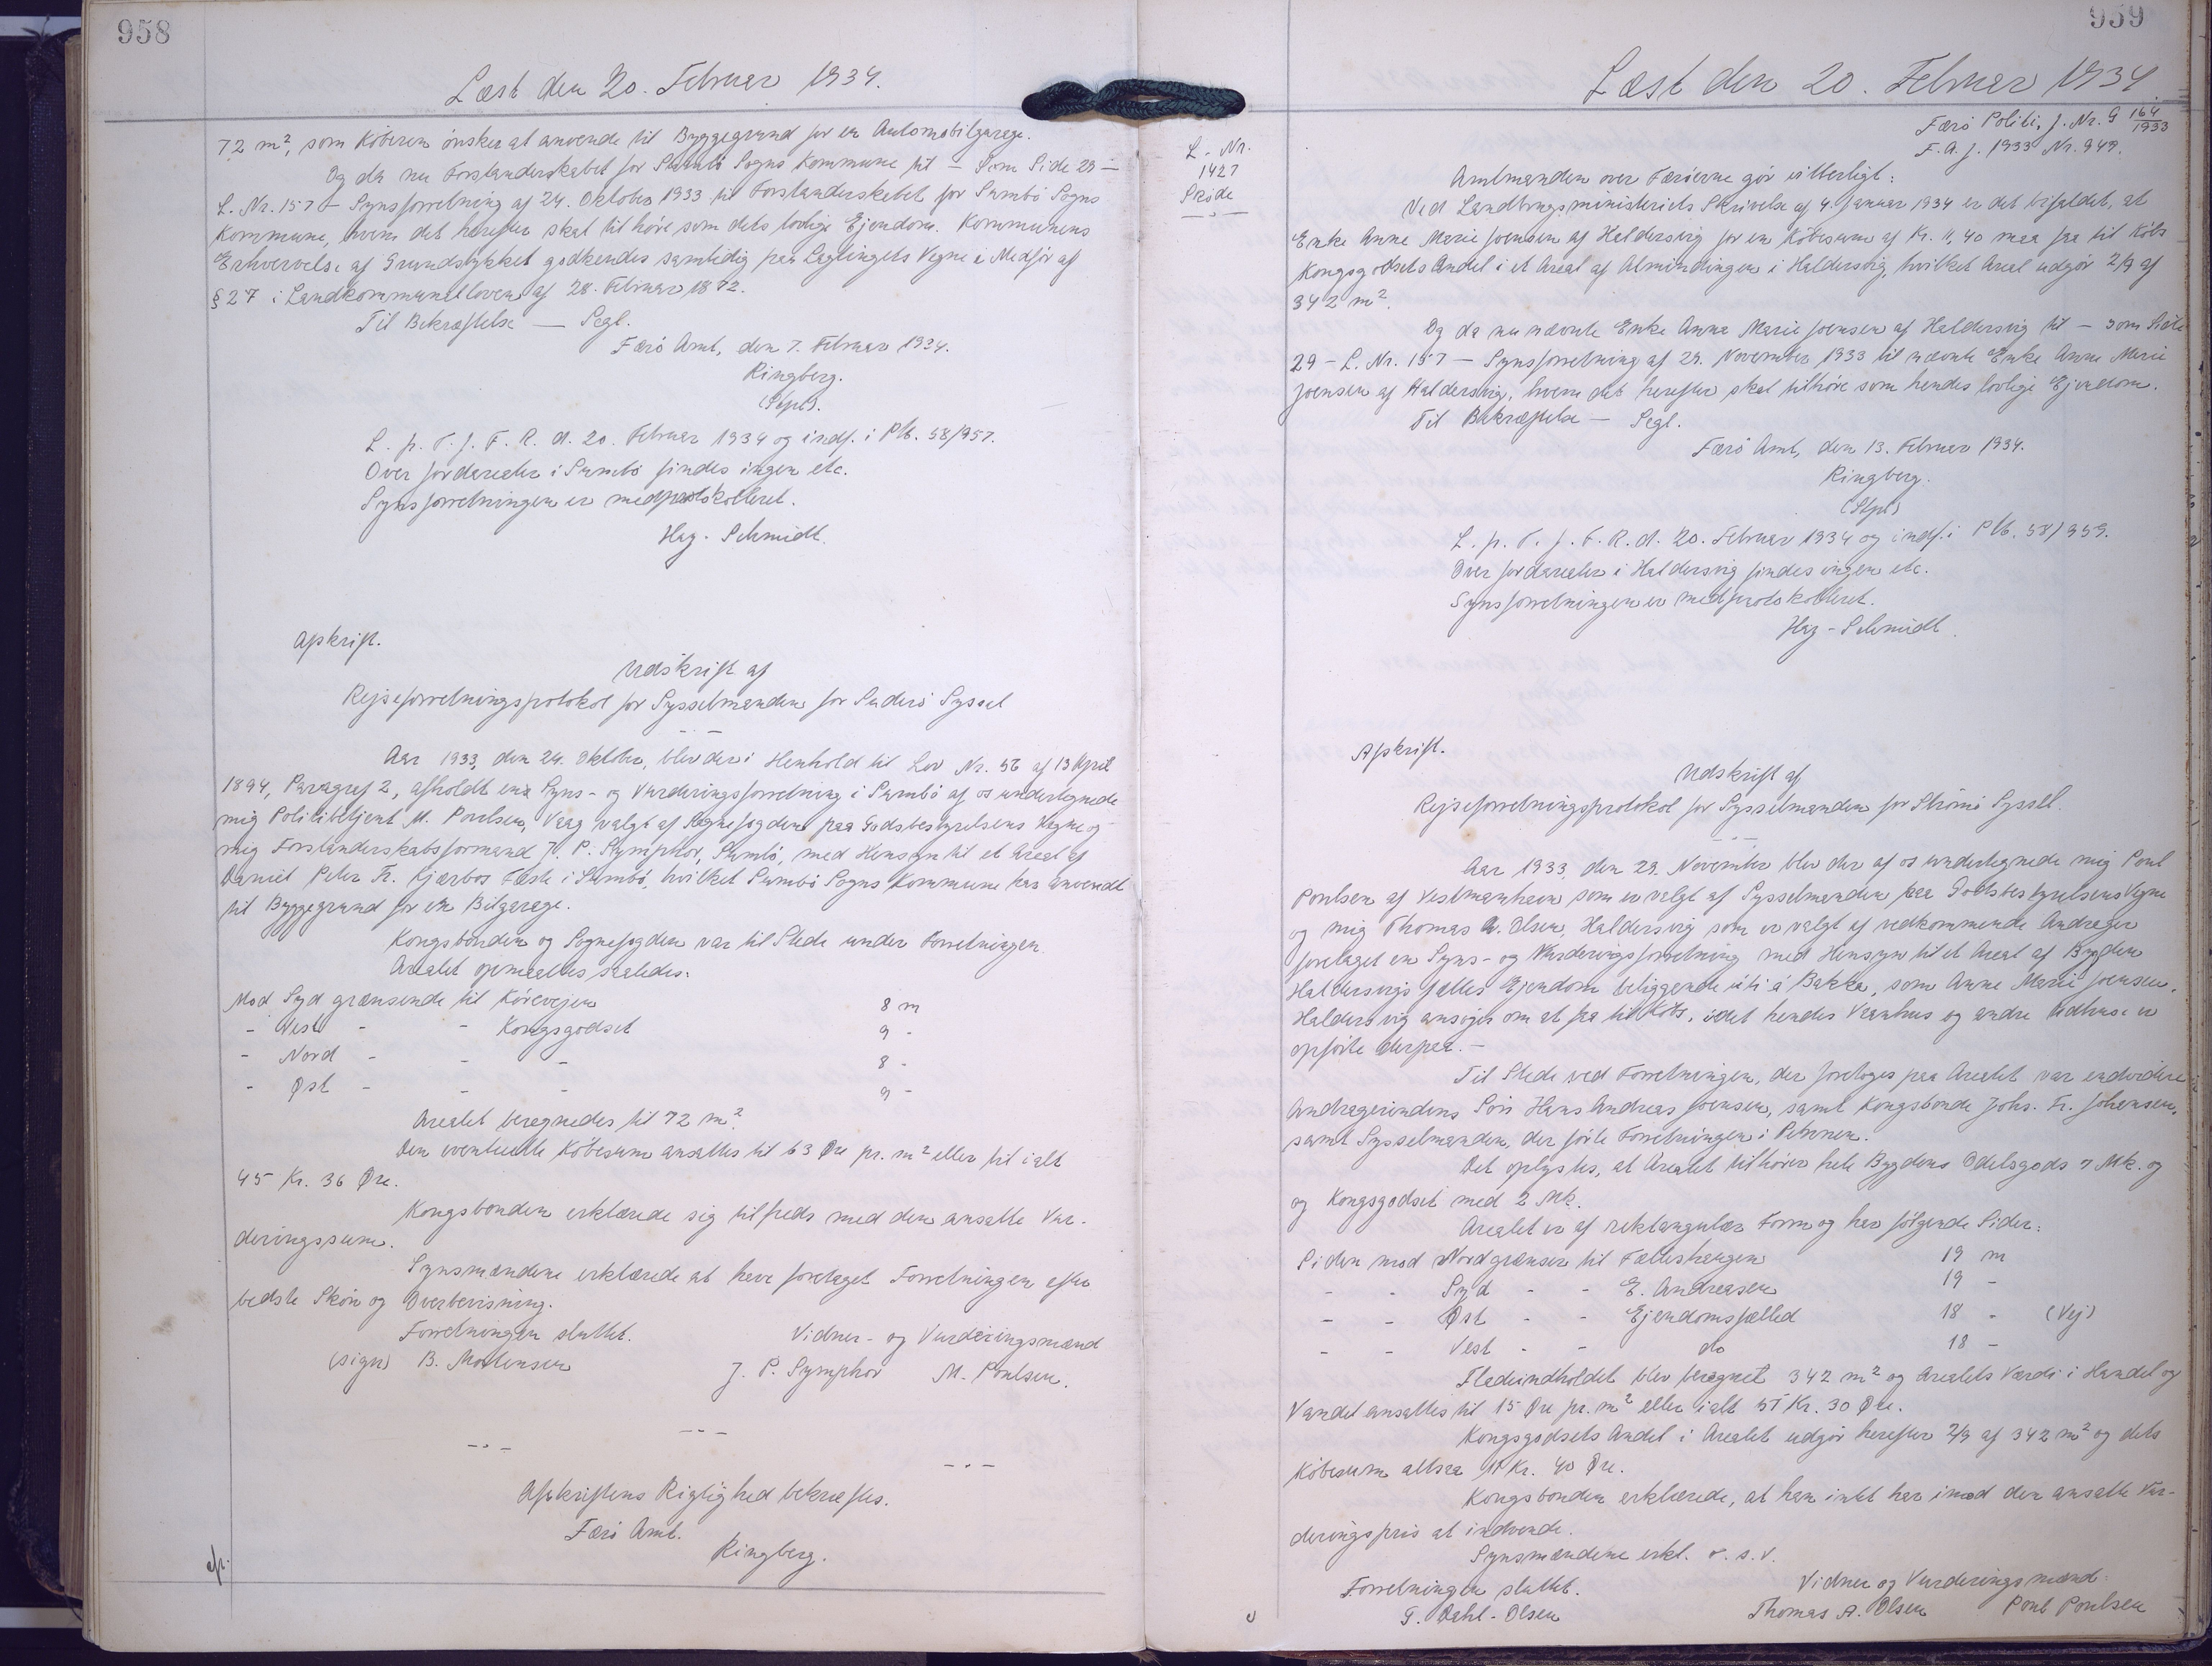 958
Læst den 20. Februar 1934.
72 m², som Köberen önsker at anvende til Byggegrund for en Automobilgarage.
Og da nu Forstanderskabet for Sumbö Sogns Kommune til — Som Side 29 —
L. Nr. 157 — Synsforretning af 24. Oktober 1933 til Forstanderskabet for Sumbö Sogns
Kommune, hvem det herefter skal tilhöre som dets lovlige Ejendom. Kommunens
Erhvervelse af Grundstykket godkendes samtidig paa Lagtingets Vegne i Medför af
§ 27 i Landkommunalloven af 28. Februar 1872.
Til Bekræftelse — Segl.
Færö Amt, den 7. Februar 1934.
Ringberg.
(Stpl).
L. p. T. f. F. R. d. 20. Februar 1934 og indf. i Pb. 58/957.
Over Jordarealer i Sumbö findes ingen etc.
Synsforretningen er medprotokolleret.
Hag-Schmidt.
Afskrift.
Udskrift af
Rejseforretningsprotokol for Sysselmanden for Suderö Syssel
Aar 1933, den 24. Oktober, blev der i Henhold til Lov Nr. 56 af 13 April
1894, Paragraf 2, afholdt en Syns- og Vurderingsforretning i Sumbö af os undertegnede
mig Politibetjent M. Poulsen, Vaag valgt af Sognefogden paa Godsbestyrelsens Vegne og
mig Forstanderskabsformand J. P. Symphor, Sumbö, med Hensyn til et Areal af
Daniel Peter Fr. Kjærbos Fæste i Sumbö, hvilket Sumbö Sogns Kommune har anvendt
til Byggegrund for en Bilgarage.
Kongsbonden og Sognefogden var til Stede under Forretningen.
Arealet opmaaltes saaledes:
Mod Syd grænsende til Körevejen 8 m
- Vest - - Kongsgodset 9 -
- Nord - - - 8 -
- Øst - - - 9 -
Arealet beregnedes til 72 m².
Den eventuelle Köbesum ansattes til 63 Øre pr. m² eller til ialt
45 Kr. 36 Øre.
Kongsbonden erklærede sig tilfreds med den ansatte Vur-
deringssum.
Synsmændene erklærede at have foretaget Forretningen efter
bedste Skön og Overbevisning.
Forretningen sluttet. Vidner- og Vurderingsmænd
(sign) B. Mortensen J. P. Symphor M. Poulsen.
Afskriftens Rigtighed bekræftes.
Færö Amt.
Ringberg.
959
Læst den 20. Februar 1934.
Færö Politi, J. Nr. G 164/1933
F. A. J. 1933 Nr. 949.
L. Nr.
1427
Sköde
Amtmanden over Færöerne gör vitterligt:
Ved Landbrugsministeriets Skrivelse af 4. Januar 1934 er det bifaldet, at
Enke Anne Marie Joensen af Haldersvig for en Köbesum af Kr. 11,40 maa faa til Köbs
Kongsgodsets Andel i et Areal af Almindingen i Haldersvig, hvilket Areal udgör 2/9 af
342 m².
Og da nu nævnte Enke Anna Marie Joensen af Haldersvig til — som Side
29 — L. Nr. 157 — Synsforretning af 29. November 1933 til nævnte Enke Anne Marie
Joensen af Haldersvig, hvem det herefter skal tilhöre som hendes lovlige Ejendom.
Til Bekræftelse — Segl.
Færö Amt, den 13. Februar 1934.
Ringberg.
(Stpl)
L. p. T. f. F. R. d. 20. Februar 1934 og indf. i Pb. 58/959.
Over Jordarealer i Haldersvig findes ingen etc.
Synsforretningen er medprotokolleret.
Hag-Schmidt.
Afskrift.
Udskrift af
Rejseforretningsprotokol for Sysselmanden for Strömö Syssel.
Aar 1933, den 29. November blev der af os undertegnede mig Poul
Poulsen af Vestmanhavn som er valgt af Sysselmanden paa Godsbestyrelsens Vegne
og mig Thomas A. Olsen, Haldersvig som er valgt af vedkommende Andrager
foretaget en Syns- og Vurderingsforretning med Hensyn til et Areal af Bygden
Haldersvigs fælles Ejendom beliggende úti á Bakka, som Anne Marie Joensen,
Haldersvig ansöger om at faa til Köbs, idet hendes Vaanhus og andre Udhuse er
opförte derpaa. —
Til Stede ved Forretningen, der foretoges paa Arealet var endvidere
Andragerindens Sön Hans Andreas Joensen, samt Kongsbonde Johs. Fr. Johansen,
samt Sysselmanden, der förte Forretningen i Pennen.
Det oplystes, at Arealet tilhörer hele Bygdens Odelsgods 7 Mk. og
og Kongsgodset med 2 Mk.
Arealet er af rektangulær Form og har fölgende Sider:
Siden mod Nord grænser til Fælleshaugen 19 m
- - Syd - - E. Andreasen 19 -
- - Øst - - Ejendomsfælled 18 - (Vej)
- - Vest - - do 18 -
Fladeindholdet blev beregnet 342 m² og Arealets Værdi i Handel og
Vandel ansattes til 15 Øre pr. m² eller ialt 51 Kr. 30 Øre.
Kongsgodsets Andel i Arealet udgör herefter 2/9 af 342 m² og dets
Köbesum altsaa 11 Kr. 40 Øre.
Kongsbonden erklærede, at han intet har imod den ansatte Vur-
deringspris at indvende.
Synsmændene erkl. o. s. v.
Forretningen sluttet. Vidner og Vurderingsmænd:
T. Dahl-Olsen Thomas A. Olsen Poul Poulsen